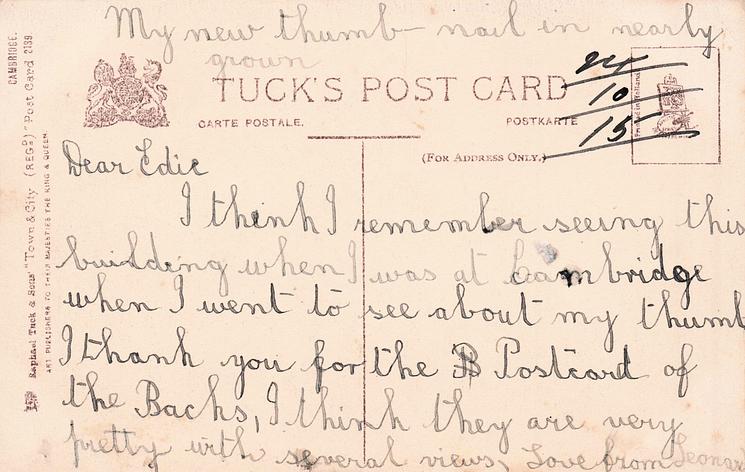 My new thumb-nail in nearly
grown
CAMBRIDGE.
Raphael Tuck & Sons' "Town & City" (REGD) "Post Card 2139
ART PUBLISHERS TO THEIR MAJESTIES THE KING & QUEEN.
TUCK'S POST CARD
CARTE POSTALE.
POSTKARTE
(FOR ADDRESS ONLY.)
24
10
15
Printed in Holland
Dear Edie
I think I remember seeing this
building when I was at Cambridge
when I went to see about my thumb
I thank you for the B Postcard of
the Backs, I think they are very
pretty with several views, Love from Leonar